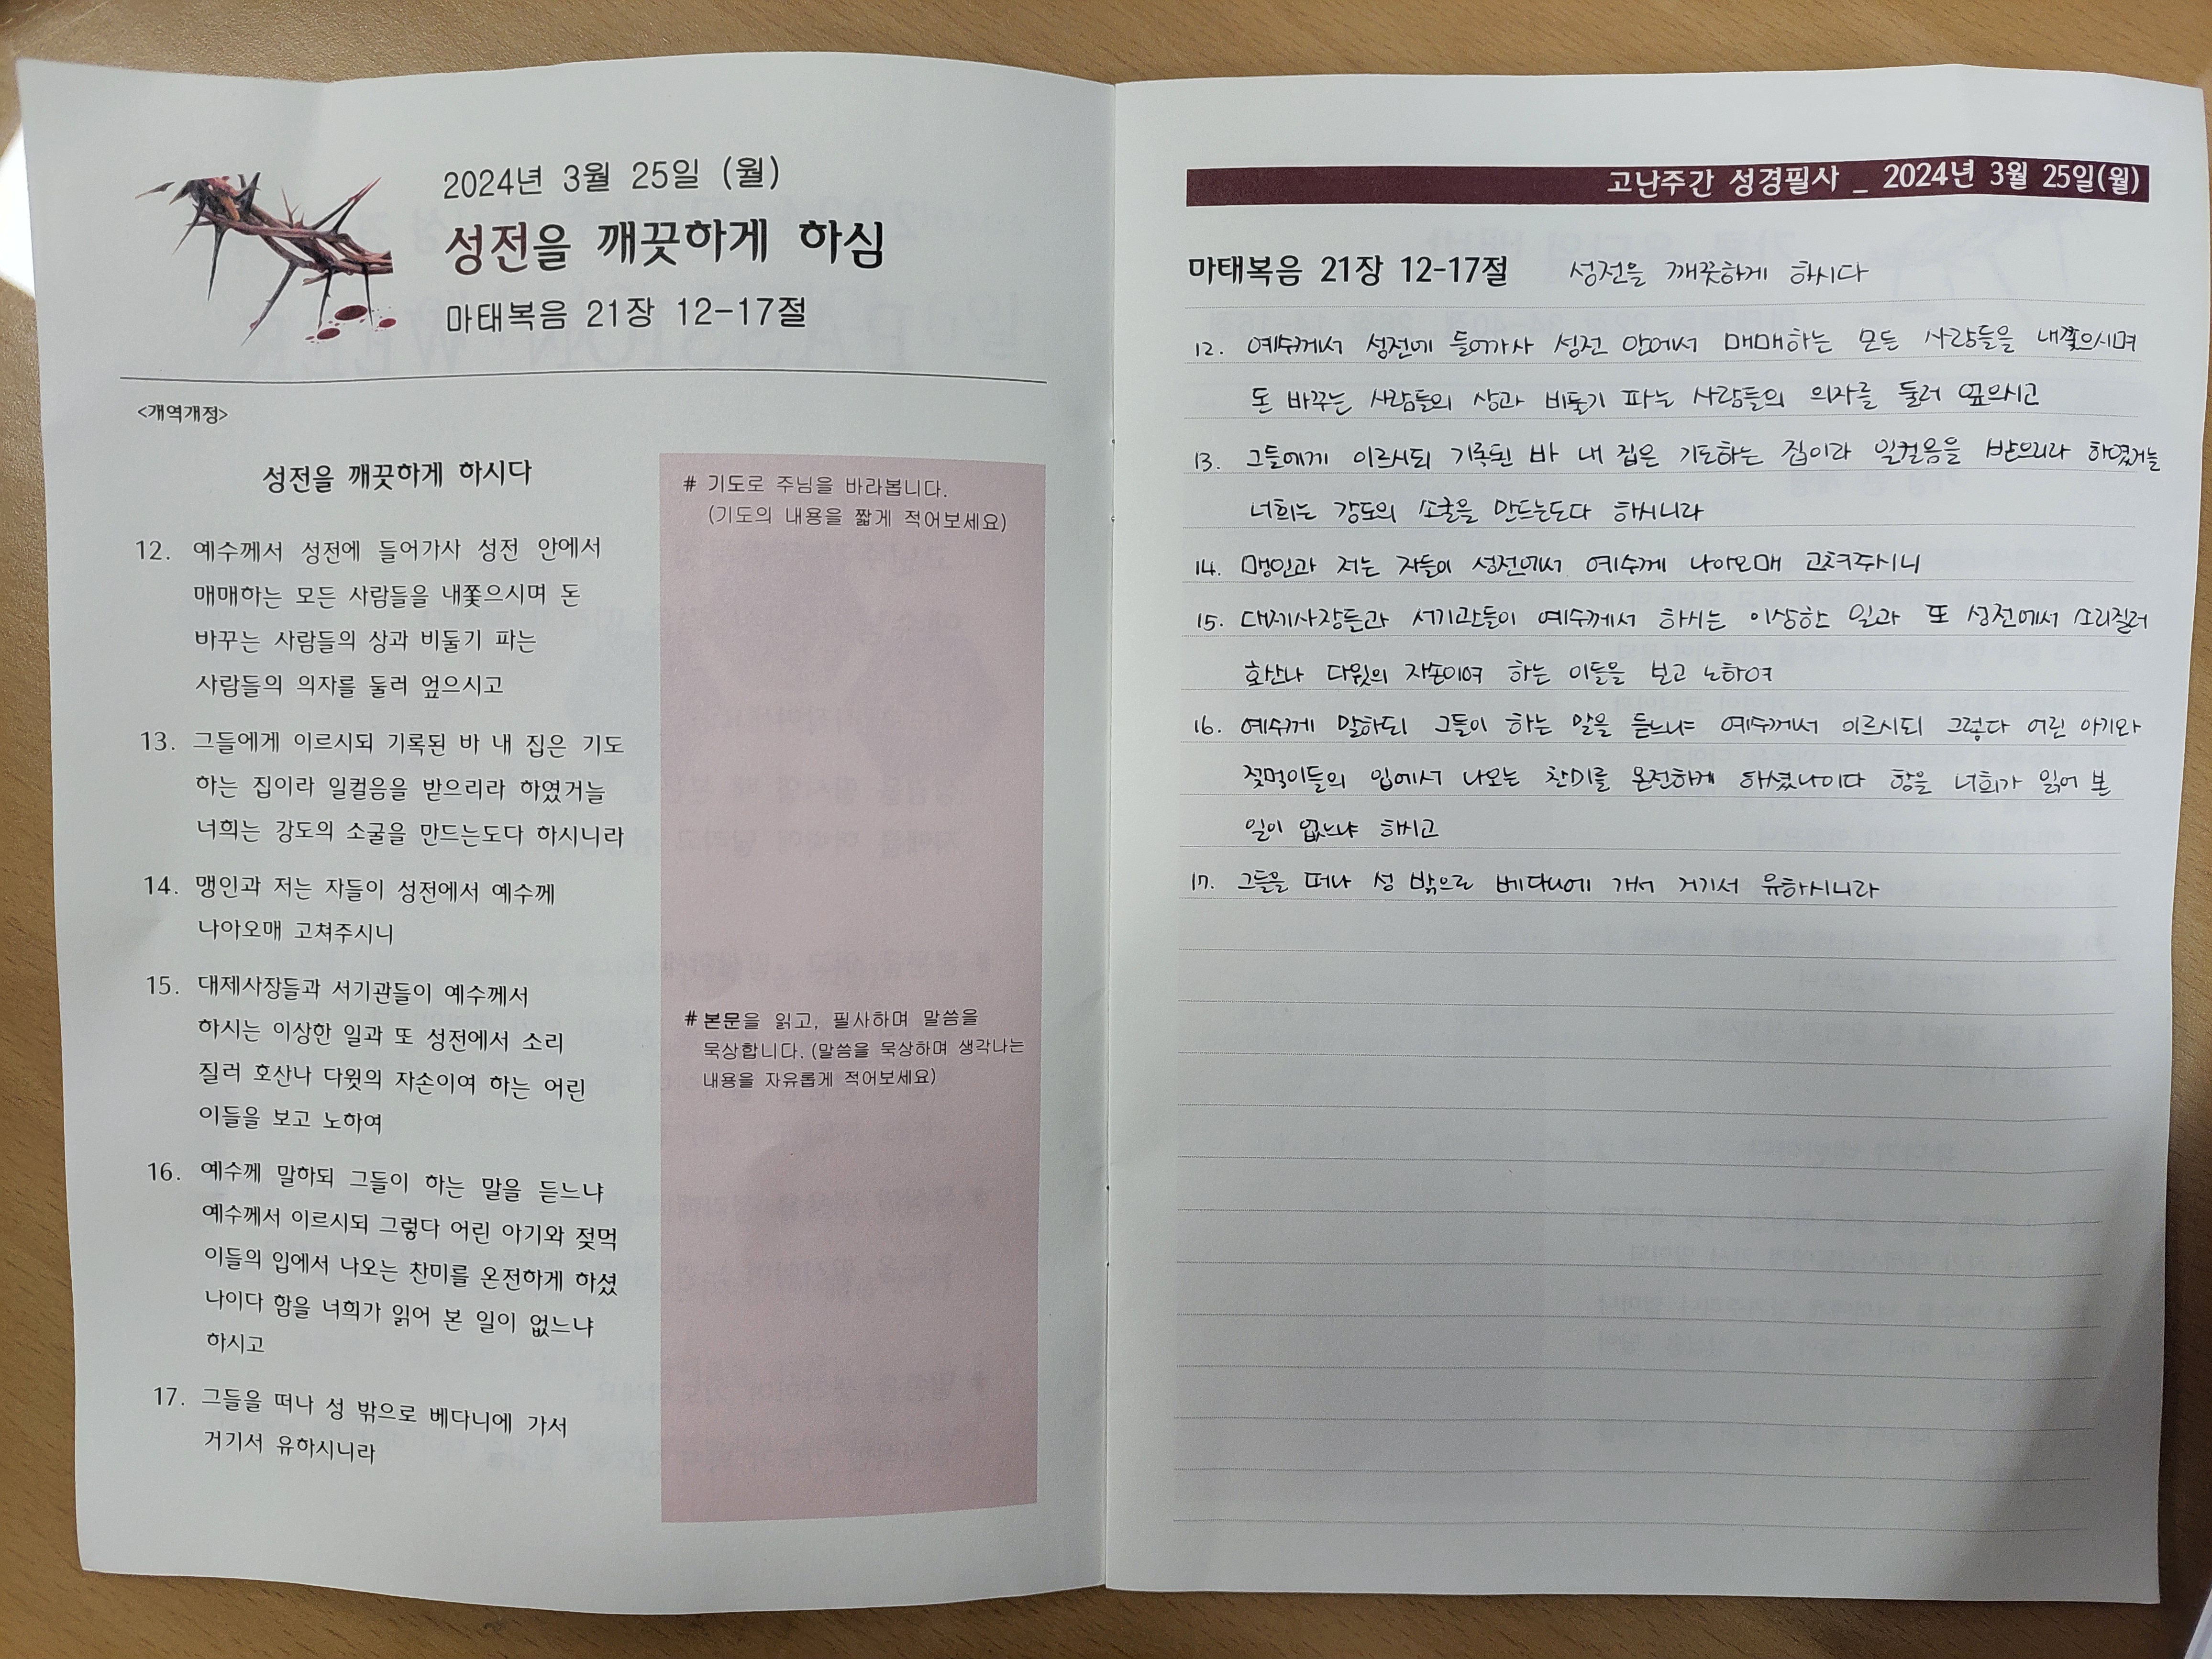 2024년 3월 25일 (월)
성전을 깨끗하게 하심
마태복음 21장 12-17절
<개역개정>
성전을 깨끗하게 하시다
12. 예수께서 성전에 들어가사 성전 안에서
매매하는 모든 사람들을 내쫓으시며 돈
바꾸는 사람들의 상과 비둘기 파는
사람들의 의자를 둘러 엎으시고
13. 그들에게 이르시되 기록된 바 내 집은 기도
하는 집이라 일컬음을 받으리라 하였거늘
너희는 강도의 소굴을 만드는도다 하시니라
14. 맹인과 저는 자들이 성전에서 예수께
나아오매 고쳐주시니
15. 대제사장들과 서기관들이 예수께서
하시는 이상한 일과 또 성전에서 소리
질러 호산나 다윗의 자손이여 하는 어린
이들을 보고 노하여
16. 예수께 말하되 그들이 하는 말을 듣느냐
예수께서 이르시되 그렇다 어린 아기와 젖먹
이들의 입에서 나오는 찬미를 온전하게 하셨
나이다 함을 너희가 읽어 본 일이 없느냐
하시고
17. 그들을 떠나 성 밖으로 베다니에 가서
거기서 유하시니라
# 기도로 주님을 바라봅니다.
(기도의 내용을 짧게 적어보세요)
# 본문을 읽고, 필사하며 말씀을
묵상합니다. (말씀을 묵상하며 생각나는
내용을 자유롭게 적어보세요)
고난주간 성경필사 _ 2024년 3월 25일(월)
마태복음 21장 12-17절 성전을 깨끗하게 하시다
12. 예수께서 성전에 들어가사 성전 안에서 매매하는 모든 사람들을 내쫓으시며
돈 바꾸는 사람들의 상과 비둘기 파는 사람들의 의자를 둘러 엎으시고
13. 그들에게 이르시되 기록된 바 내 집은 기도하는 집이라 일컬음을 받으리라 하였거늘
너희는 강도의 소굴을 만드는도다 하시니라
14. 맹인과 저는 자들이 성전에서 예수께 나아오매 고쳐주시니
15. 대제사장들과 서기관들이 예수께서 하시는 이상한 일과 또 성전에서 소리질러
호산나 다윗의 자손이여 하는 이들을 보고 노하여
16. 예수께 말하되 그들이 하는 말을 듣느냐 예수께서 이르시되 그렇다 어린 아기와
젖먹이들의 입에서 나오는 찬미를 온전하게 하셨나이다 함을 너희가 읽어 본
일이 없느냐 하시고
17. 그들을 떠나 성 밖으로 베다니에 가서 거기서 유하시니라